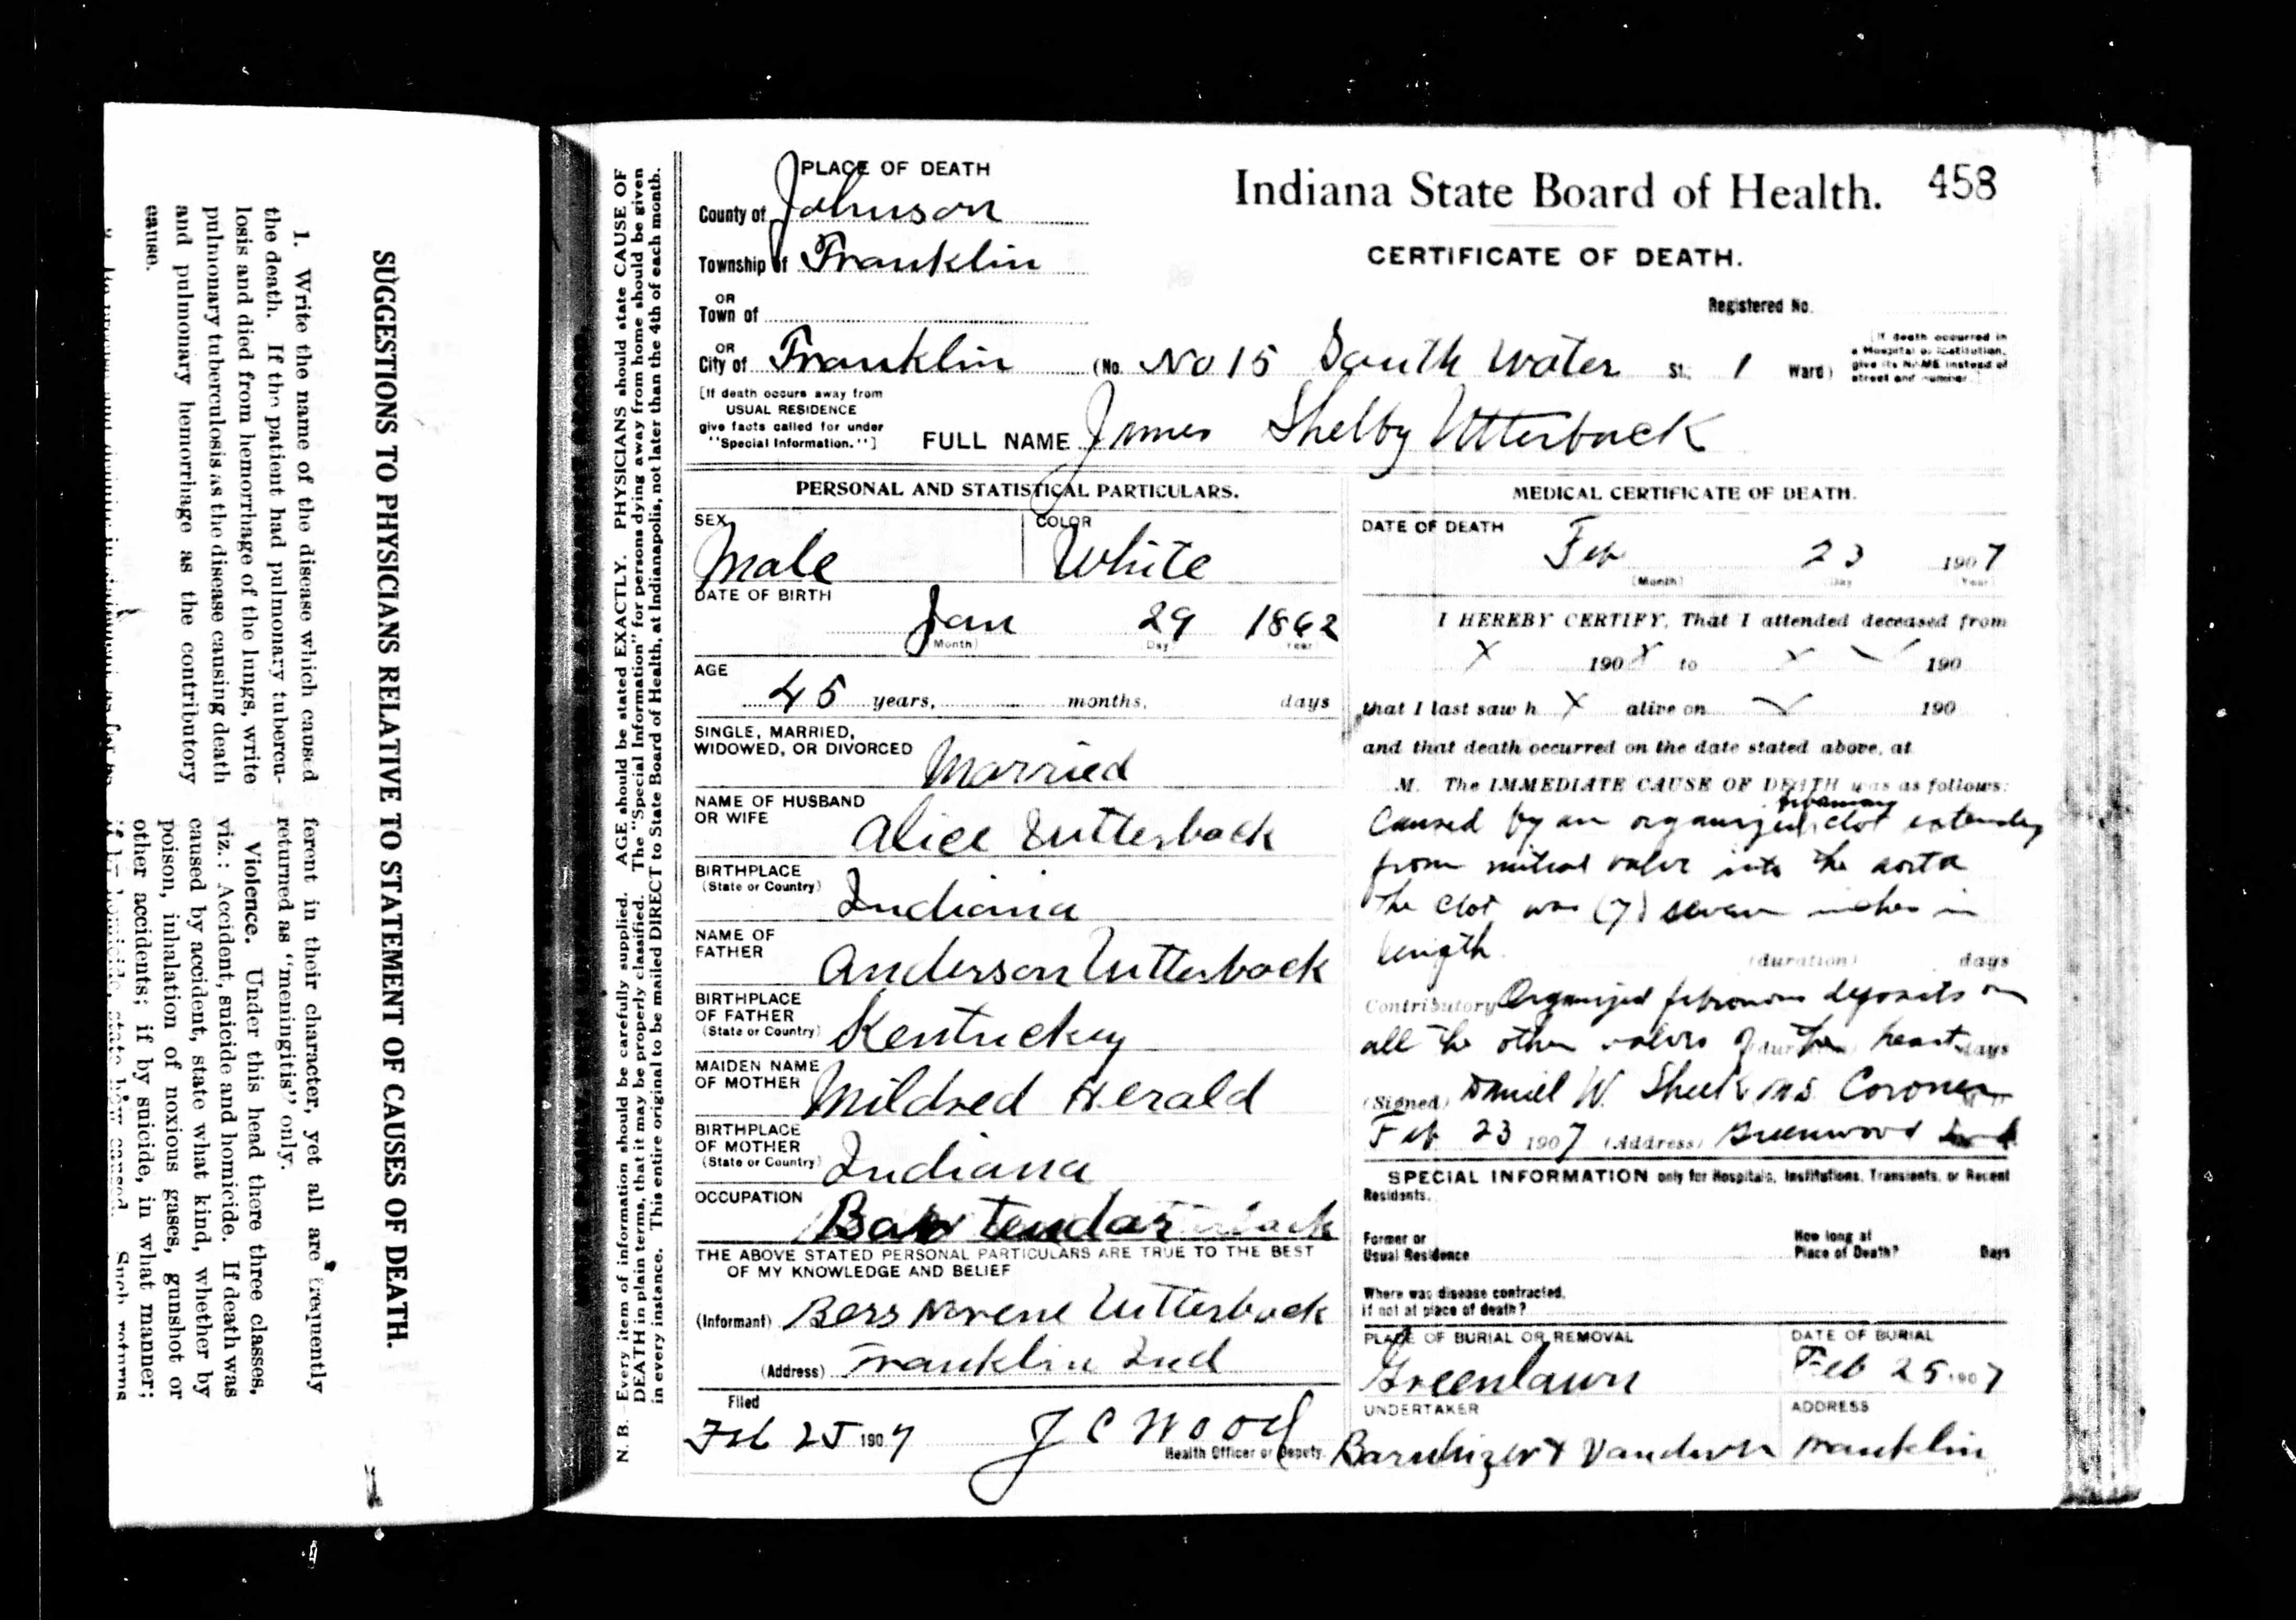 SUGGESTIONS TO PHYSICIANS RELATIVE TO STATEMENT OF CAUSES OF DEATH.
1. Write the name of the disease which caused
the death. If the patient had pulmonary tubercu-
losis and died from hemorrhage of the lungs, write
pulmonary tuberculosis as the disease causing death
and pulmonary hemorrhage as the contributory
cause.
ferent in their character, yet all are frequently
returned as "meningitis" only.
Violence. Under this head there three classes,
viz.: Accident, suicide and homicide. If death was
caused by accident, state what kind, whether by
poison, inhalation of noxious gases, gunshot or
other accidents; if by suicide, in what manner;
if by homicide, state how caused. Such returns
N. B. Every item of information should be carefully supplied. AGE should be stated EXACTLY. PHYSICIANS should state CAUSE OF
DEATH in plain terms, that it may be properly classified. The "Special Information" for persons dying away from home should be given
in every instance. This entire original to be mailed DIRECT to State Board of Health, at Indianapolis, not later than the 4th of each month.
PLACE OF DEATH
County of Johnson
Township of Franklin
OR
Town of
OR
City of Franklin (No. No 15 South Water St. 1 Ward)
[If death occurs away from
USUAL RESIDENCE
give facts called for under
"Special Information."]
Indiana State Board of Health. 458
CERTIFICATE OF DEATH.
Registered No.
[If death occurred in
a Hospital or Institution,
give its NAME instead of
street and number
FULL NAME James Shelby Utterback
PERSONAL AND STATISTICAL PARTICULARS.
SEX Male
COLOR White
DATE OF BIRTH
Jan 29 1862
(Month) (Day) Year
AGE
45 years, months, days
SINGLE, MARRIED,
WIDOWED, OR DIVORCED Married
NAME OF HUSBAND
OR WIFE Alice Utterback
BIRTHPLACE
(State or Country) Indiana
NAME OF
FATHER Anderson Utterback
BIRTHPLACE
OF FATHER
(State or Country) Kentuckey
MAIDEN NAME
OF MOTHER Mildred Herald
BIRTHPLACE
OF MOTHER
(State or Country) Indiana
OCCUPATION Bar tendar
THE ABOVE STATED PERSONAL PARTICULARS ARE TRUE TO THE BEST
OF MY KNOWLEDGE AND BELIEF
(Informant) Bess Norene Utterback
(Address) Franklin Ind
Filed
Feb 25 1907 J C Wood
Health Officer or Deputy.
MEDICAL CERTIFICATE OF DEATH.
DATE OF DEATH
Feb 23 1907
(Month) Day (Year)
I HEREBY CERTIFY, That I attended deceased from
X 190X to X 190
that I last saw h X alive on 190
and that death occurred on the date stated above, at
M. The IMMEDIATE CAUSE OF DEATH was as follows:
Caused by an organized clot extending
from mitral valve into the aorta
The clot was (7) seven inches in
length
(duration) days
Contributory Organized fibrinous deposits on
all the other valves of the heart
(duration) days
(Signed) Daniel W. Sheek Coroner
Feb 23 1907 (Address) Greenwood Ind
SPECIAL INFORMATION only for Hospitals, Institutions, Transients, or Recent
Residents.
Former or
Usual Residence
How long at
Place of Death? Days
Where was disease contracted,
if not at place of death?
PLACE OF BURIAL OR REMOVAL
Greenlawn
DATE OF BURIAL
Feb 25 1907
UNDERTAKER
Barnhizer &
ADDRESS
Franklin